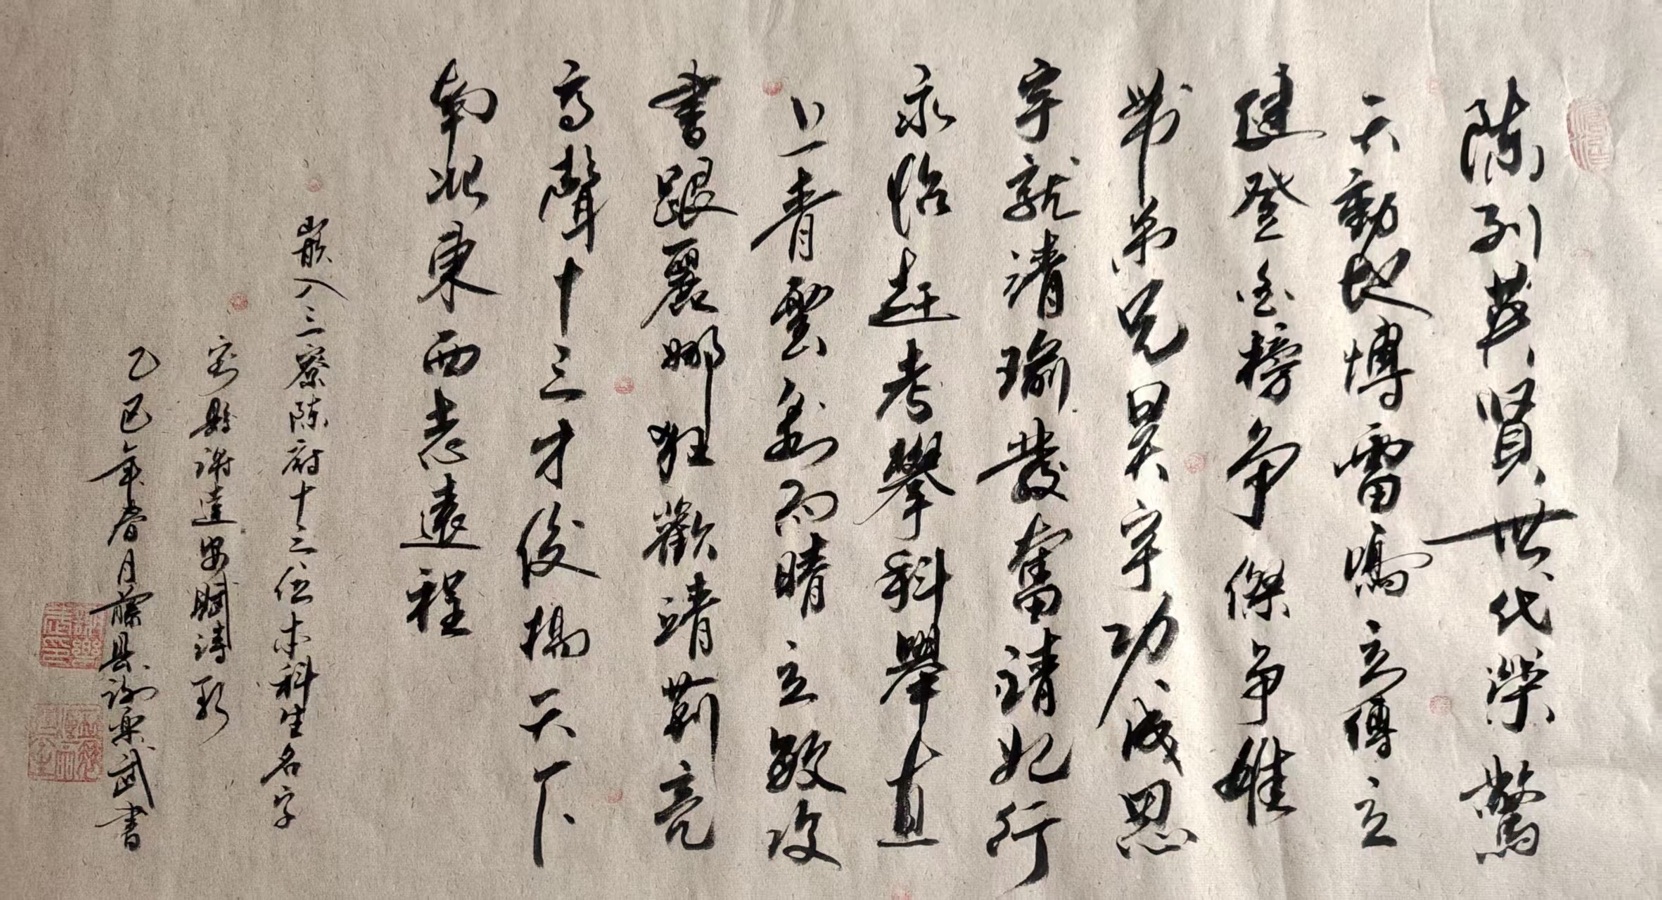 陈列英贤世代荣驚
天動地博雷鳴立傳立
健登金榜争傑争雄
帶弟兄昊宇功成思
宇就清瑜發奮靖妃行
永怡赶考攀科舉直
上青雲剑雨晴立致攻
書跟麗娜狂歡靖莉亮
高聲十三才俊揚天下
南北東西志遠程
嵌入三寮陈府十三位本科生名字
容縣謝達安賦詩
乙巳年春月藤县谢東武書